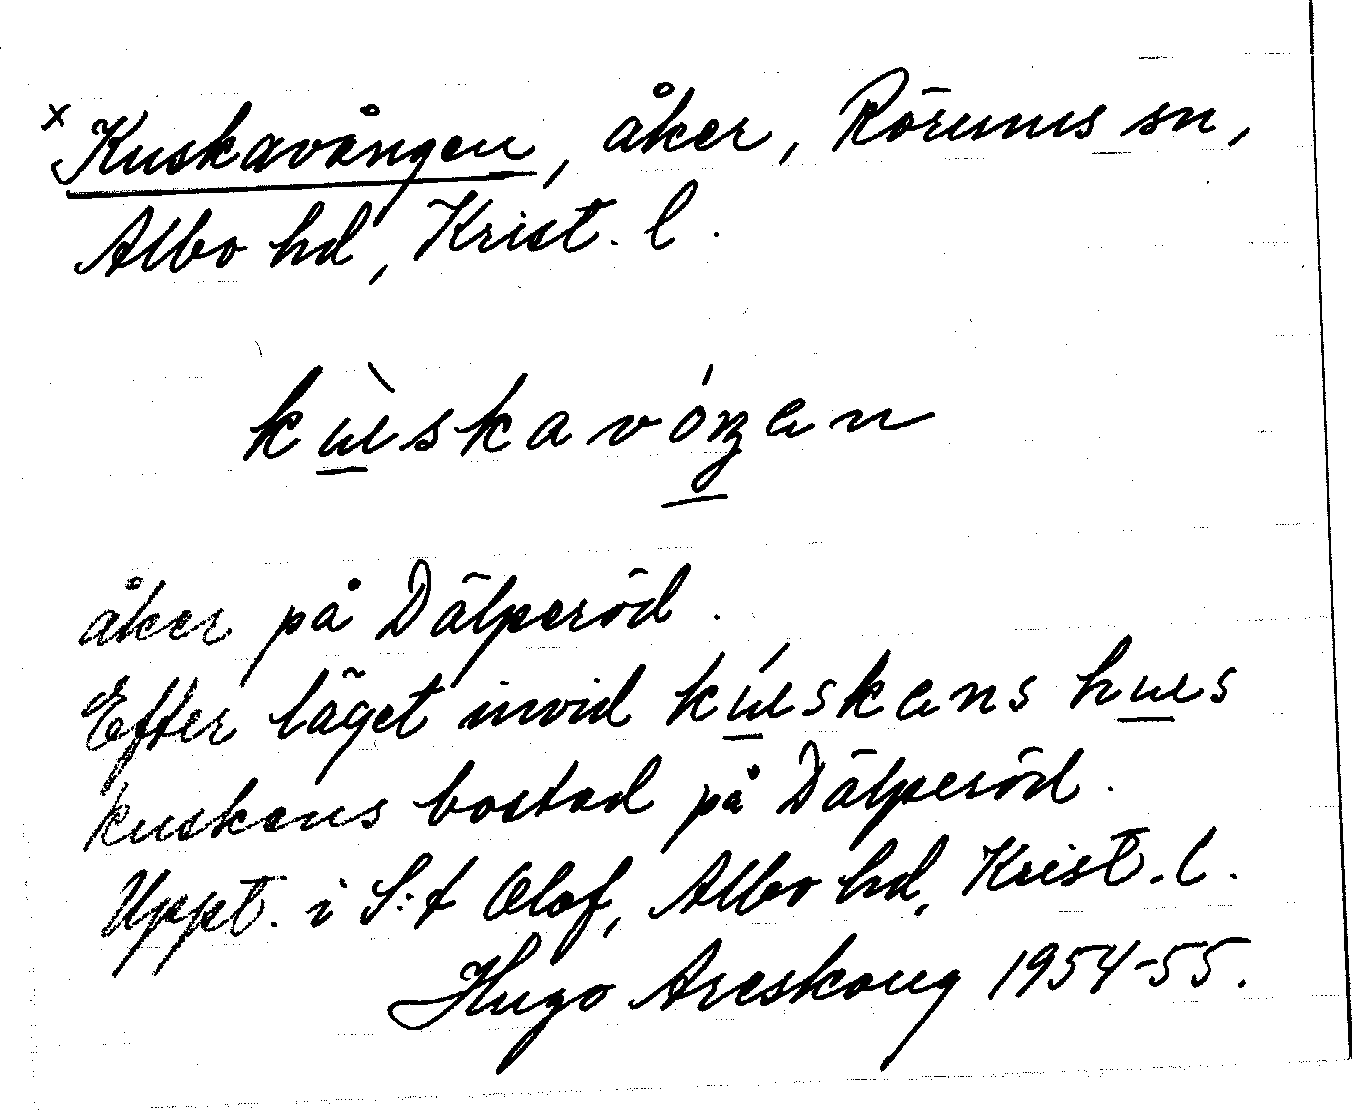 x Kuskavången, åker, Rörums sn,
Albo hd, Krist. l.
kùskavóŋen
åker på Dälperöd.
Efter läget invid kúskens hus
kuskens bostad på Dälperöd.
Uppt. i S:t Olof, Albo hd, Krist. l.
Hugo Areskoug 1954-55.